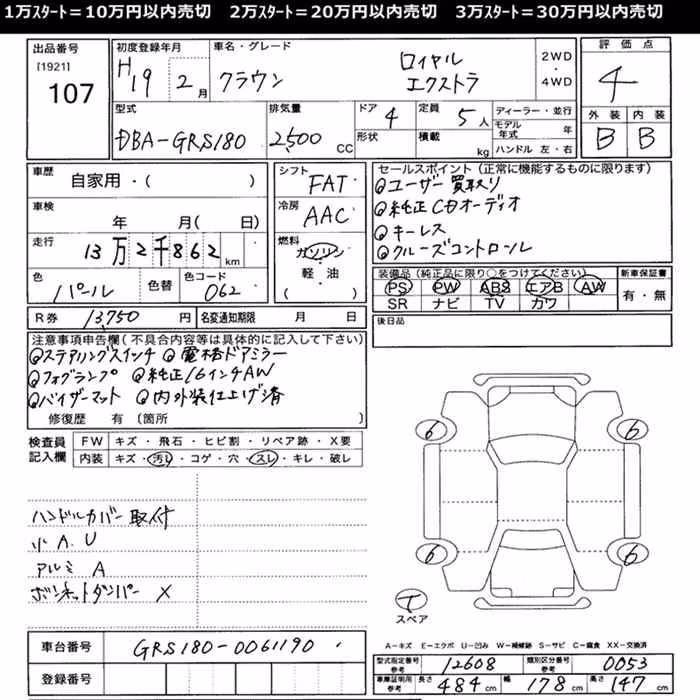 1万スタート＝10万円以内売切　2万スタート＝20万円以内売切　3万スタート＝30万円以内売切
出品番号 初度登録年月 車名・グレード 評価点
[1921] H19年 2月 クラウン ロイヤル エクストラ 2WD・4WD 4
107
型式 排気量 ドア 4 定員 5人 ディーラー・並行 外装 内装
DBA-GRS180 2500 CC 形状 積載 kg モデル年式 年 B B
ハンドル 左・右
車歴 自家用・( ) シフト FAT セールスポイント(正常に機能するものに限ります)
◎ユーザー買取り
車検 年 月( 日) 冷房 AAC ◎純正CDオーディオ
◎キーレス
走行 13万2千862km 燃料 ガソリン ◎クルーズコントロール
軽・油
( )
色 パール 色替 色コード 062 装備品(純正品に限り○をつけてください) 新車保証書
PS PW ABS エアB AW 有・無
SR ナビ TV カワ
R券 13750円 名変通知期限 月 日 後日品
注意事項申告欄(不具合内容等は具体的に記入して下さい)
◎ステアリングスイッチ ◎電格ドアミラー
◎フォグランプ ◎純正16インチAW
◎バイザーマット ◎内外装仕上げ済
修復歴 有 〔箇所 〕
検査員記入欄 FW キズ・飛石・ヒビ割・リペア跡・X要
内装 キズ・汚レ・コゲ・穴・スレ・キレ・破レ
6 6
ハンドルカバー取付
小A.U
アルミ A
ボンネットダンパー X
6 6
T
スペア
車台番号 GRS180-0061190
登録番号
A−キズ E−エクボ U−凹み W−補修跡 S−サビ C−腐食 XX−交換済
型式指定番号 参考 12608 類別区分番号 参考 0053
車庫証明用 参考 長さ 484cm 幅 178cm 高さ 147cm